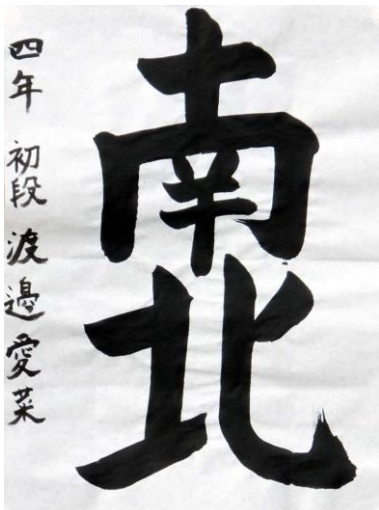 南北
四年 初段 渡邉愛菜